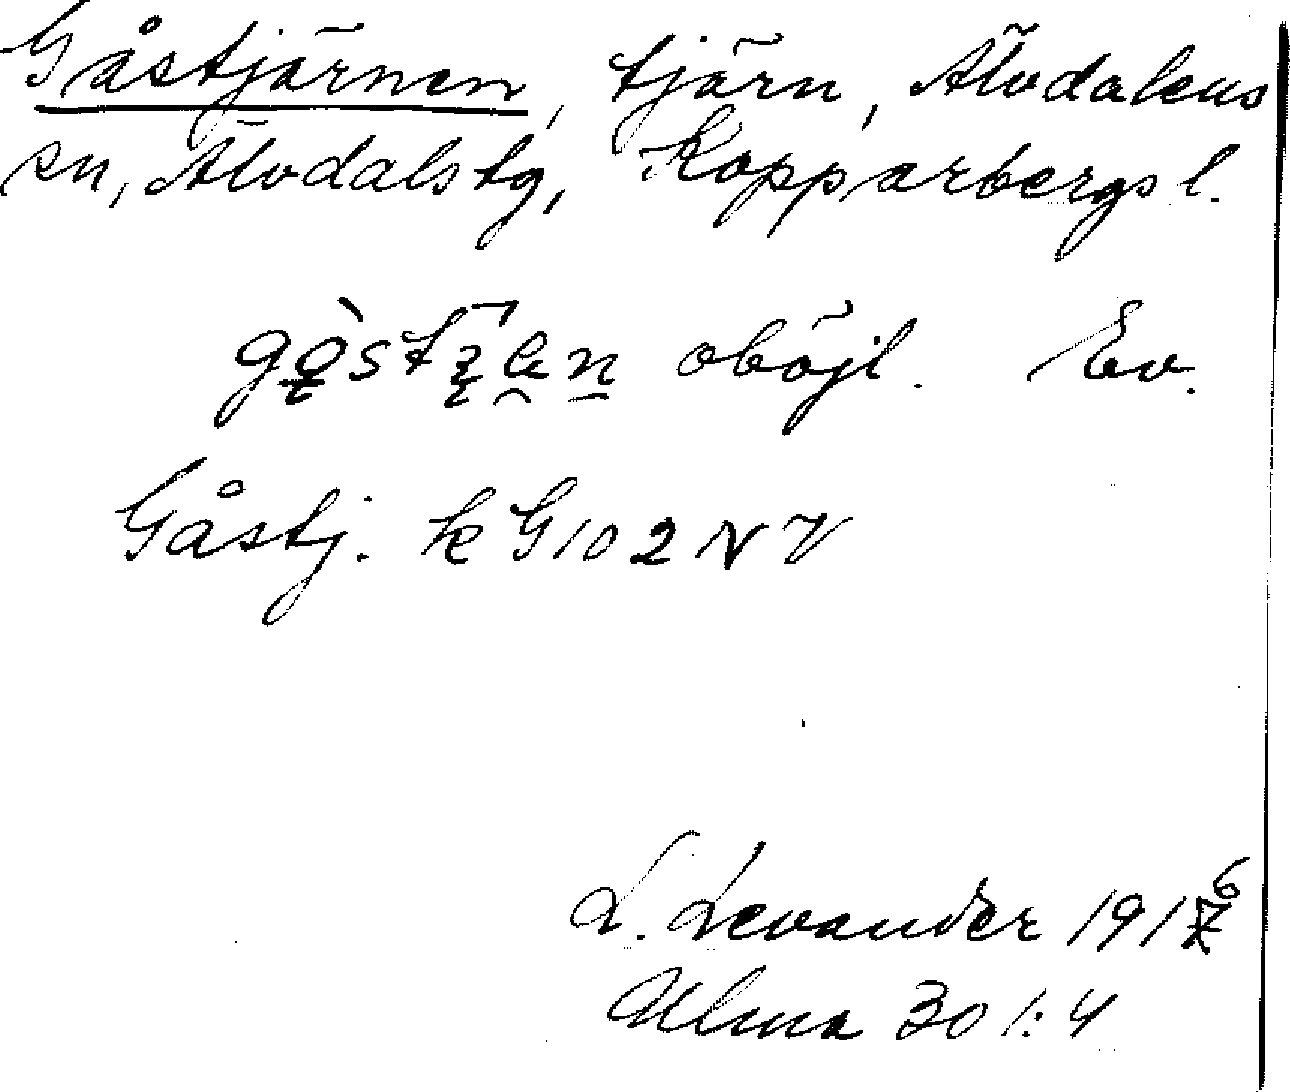 Gåstjärnen, tjärn, Älvdalens
sn, Älvdals tg, Kopparbergs l.
oböjl. Ev.
Gåstj. k G 102 NV
L. Levander 1916
Ulma 301:4